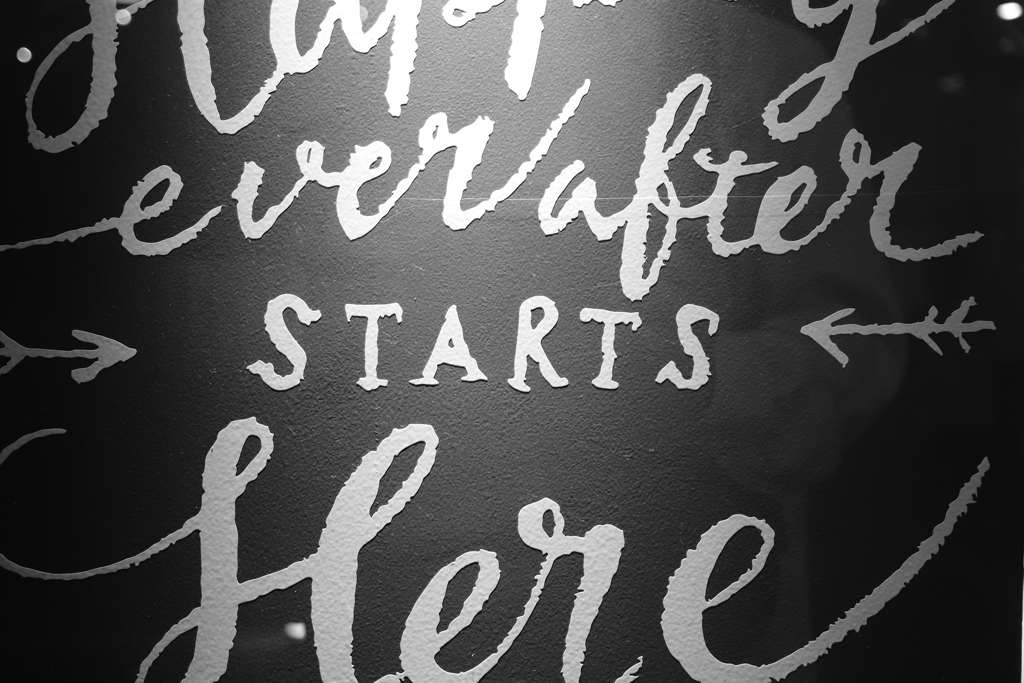 Happy
ever after
STARTS
Here